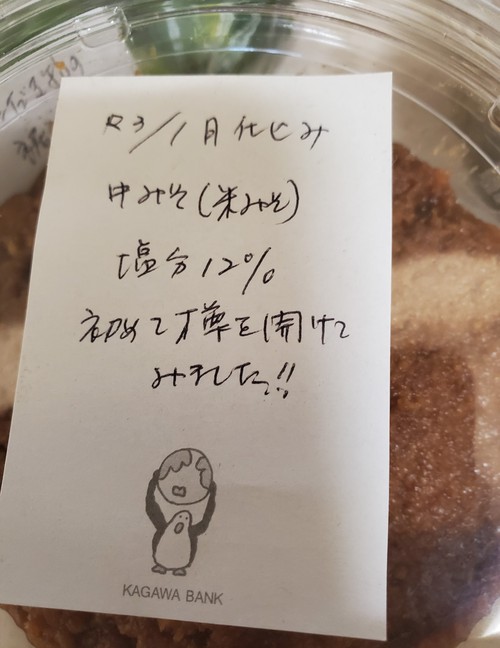 R3/1月仕込み
中みそ(米みそ)
塩分12%
初めて樽を開けて
みました!!
KAGAWA BANK